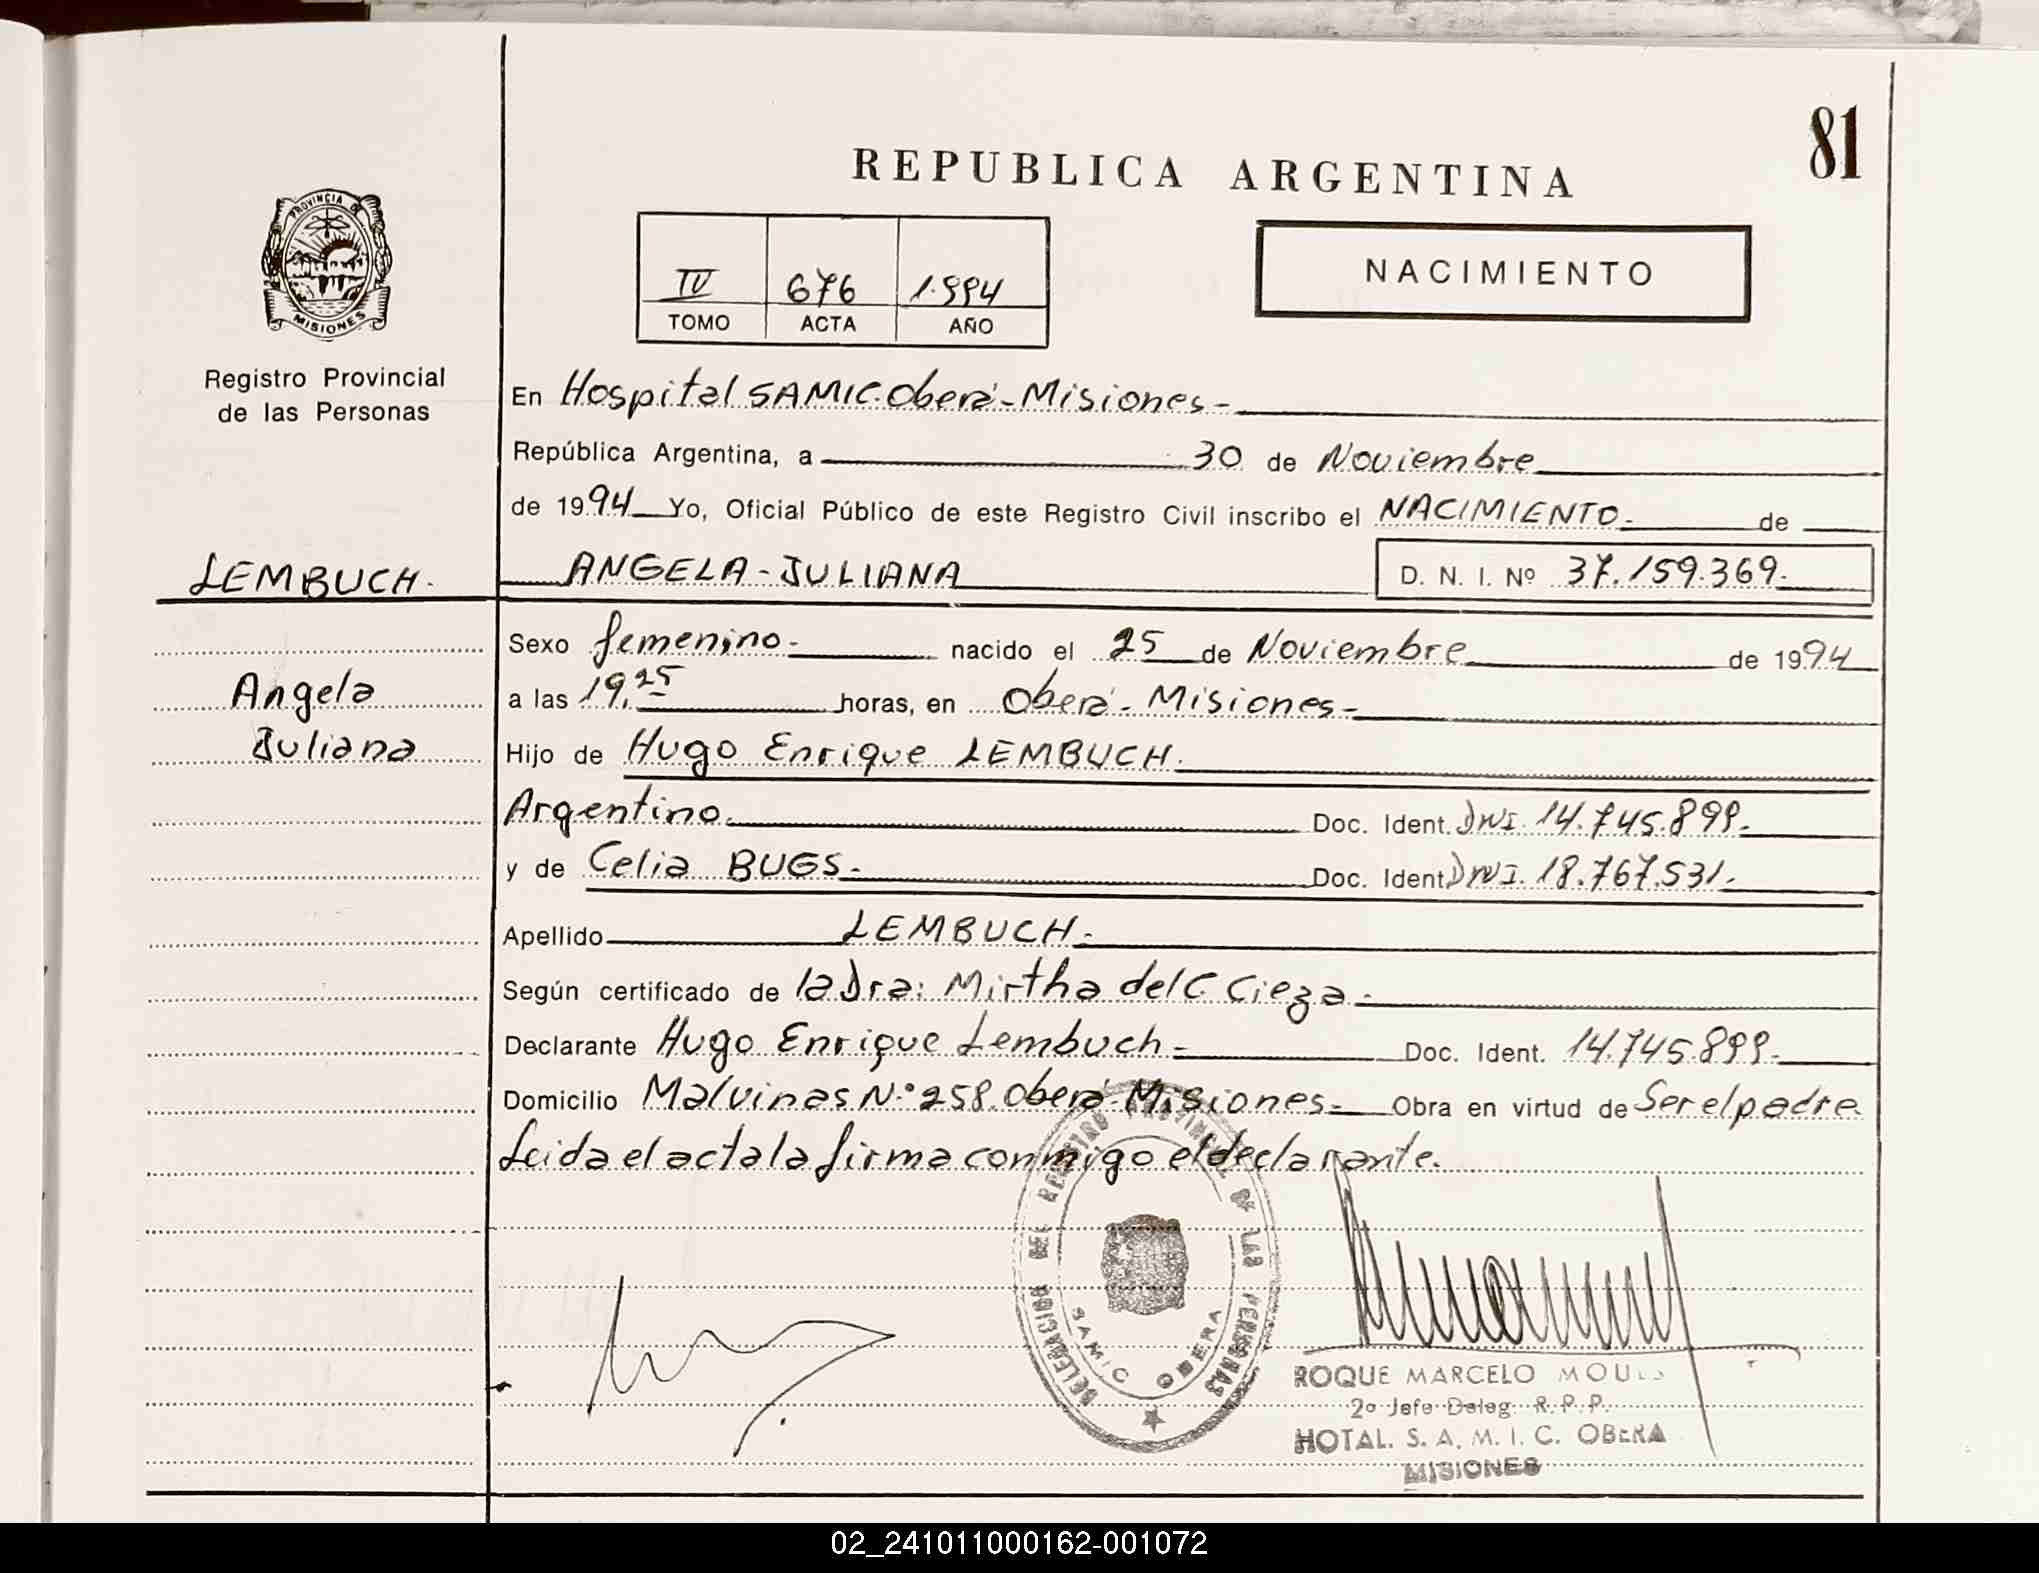 81
REPUBLICA ARGENTINA
PROVINCIA DE
MISIONES
Registro Provincial
de las Personas
IV 676 1.994
TOMO ACTA AÑO
NACIMIENTO
En Hospital SAMIC. Oberá - Misiones -
República Argentina, a 30 de Noviembre
de 1994 Yo, Oficial Público de este Registro Civil inscribo el NACIMIENTO. de
LEMBUCH. ANGELA - JULIANA D. N. I. Nº 37.159.369.
Sexo femenino - nacido el 25 de Noviembre de 1994
Angela a las 19,25 horas, en Oberá - Misiones -
Juliana Hijo de Hugo Enrique LEMBUCH.
Argentino. Doc. Ident. DNI. 14.745.899.
y de Celia BUGS. Doc. Ident. DNI. 18.767.531.
Apellido LEMBUCH.
Según certificado de la Dra: Mirtha del C. Cieza.
Declarante Hugo Enrique Lembuch - Doc. Ident. 14.745.899.
Domicilio Malvinas Nº 258. Oberá - Misiones - Obra en virtud de Ser el padre
Leida el acta la firma conmigo el declarante.
DELEGACION DEL REGISTRO PROVINCIAL DE LAS PERSONAS
SAMIC OBERA
ROQUE MARCELO
2º Jefe Deleg. R. P. P.
HOTAL. S. A. M. I. C. OBERA
MISIONES
02_241011000162-001072